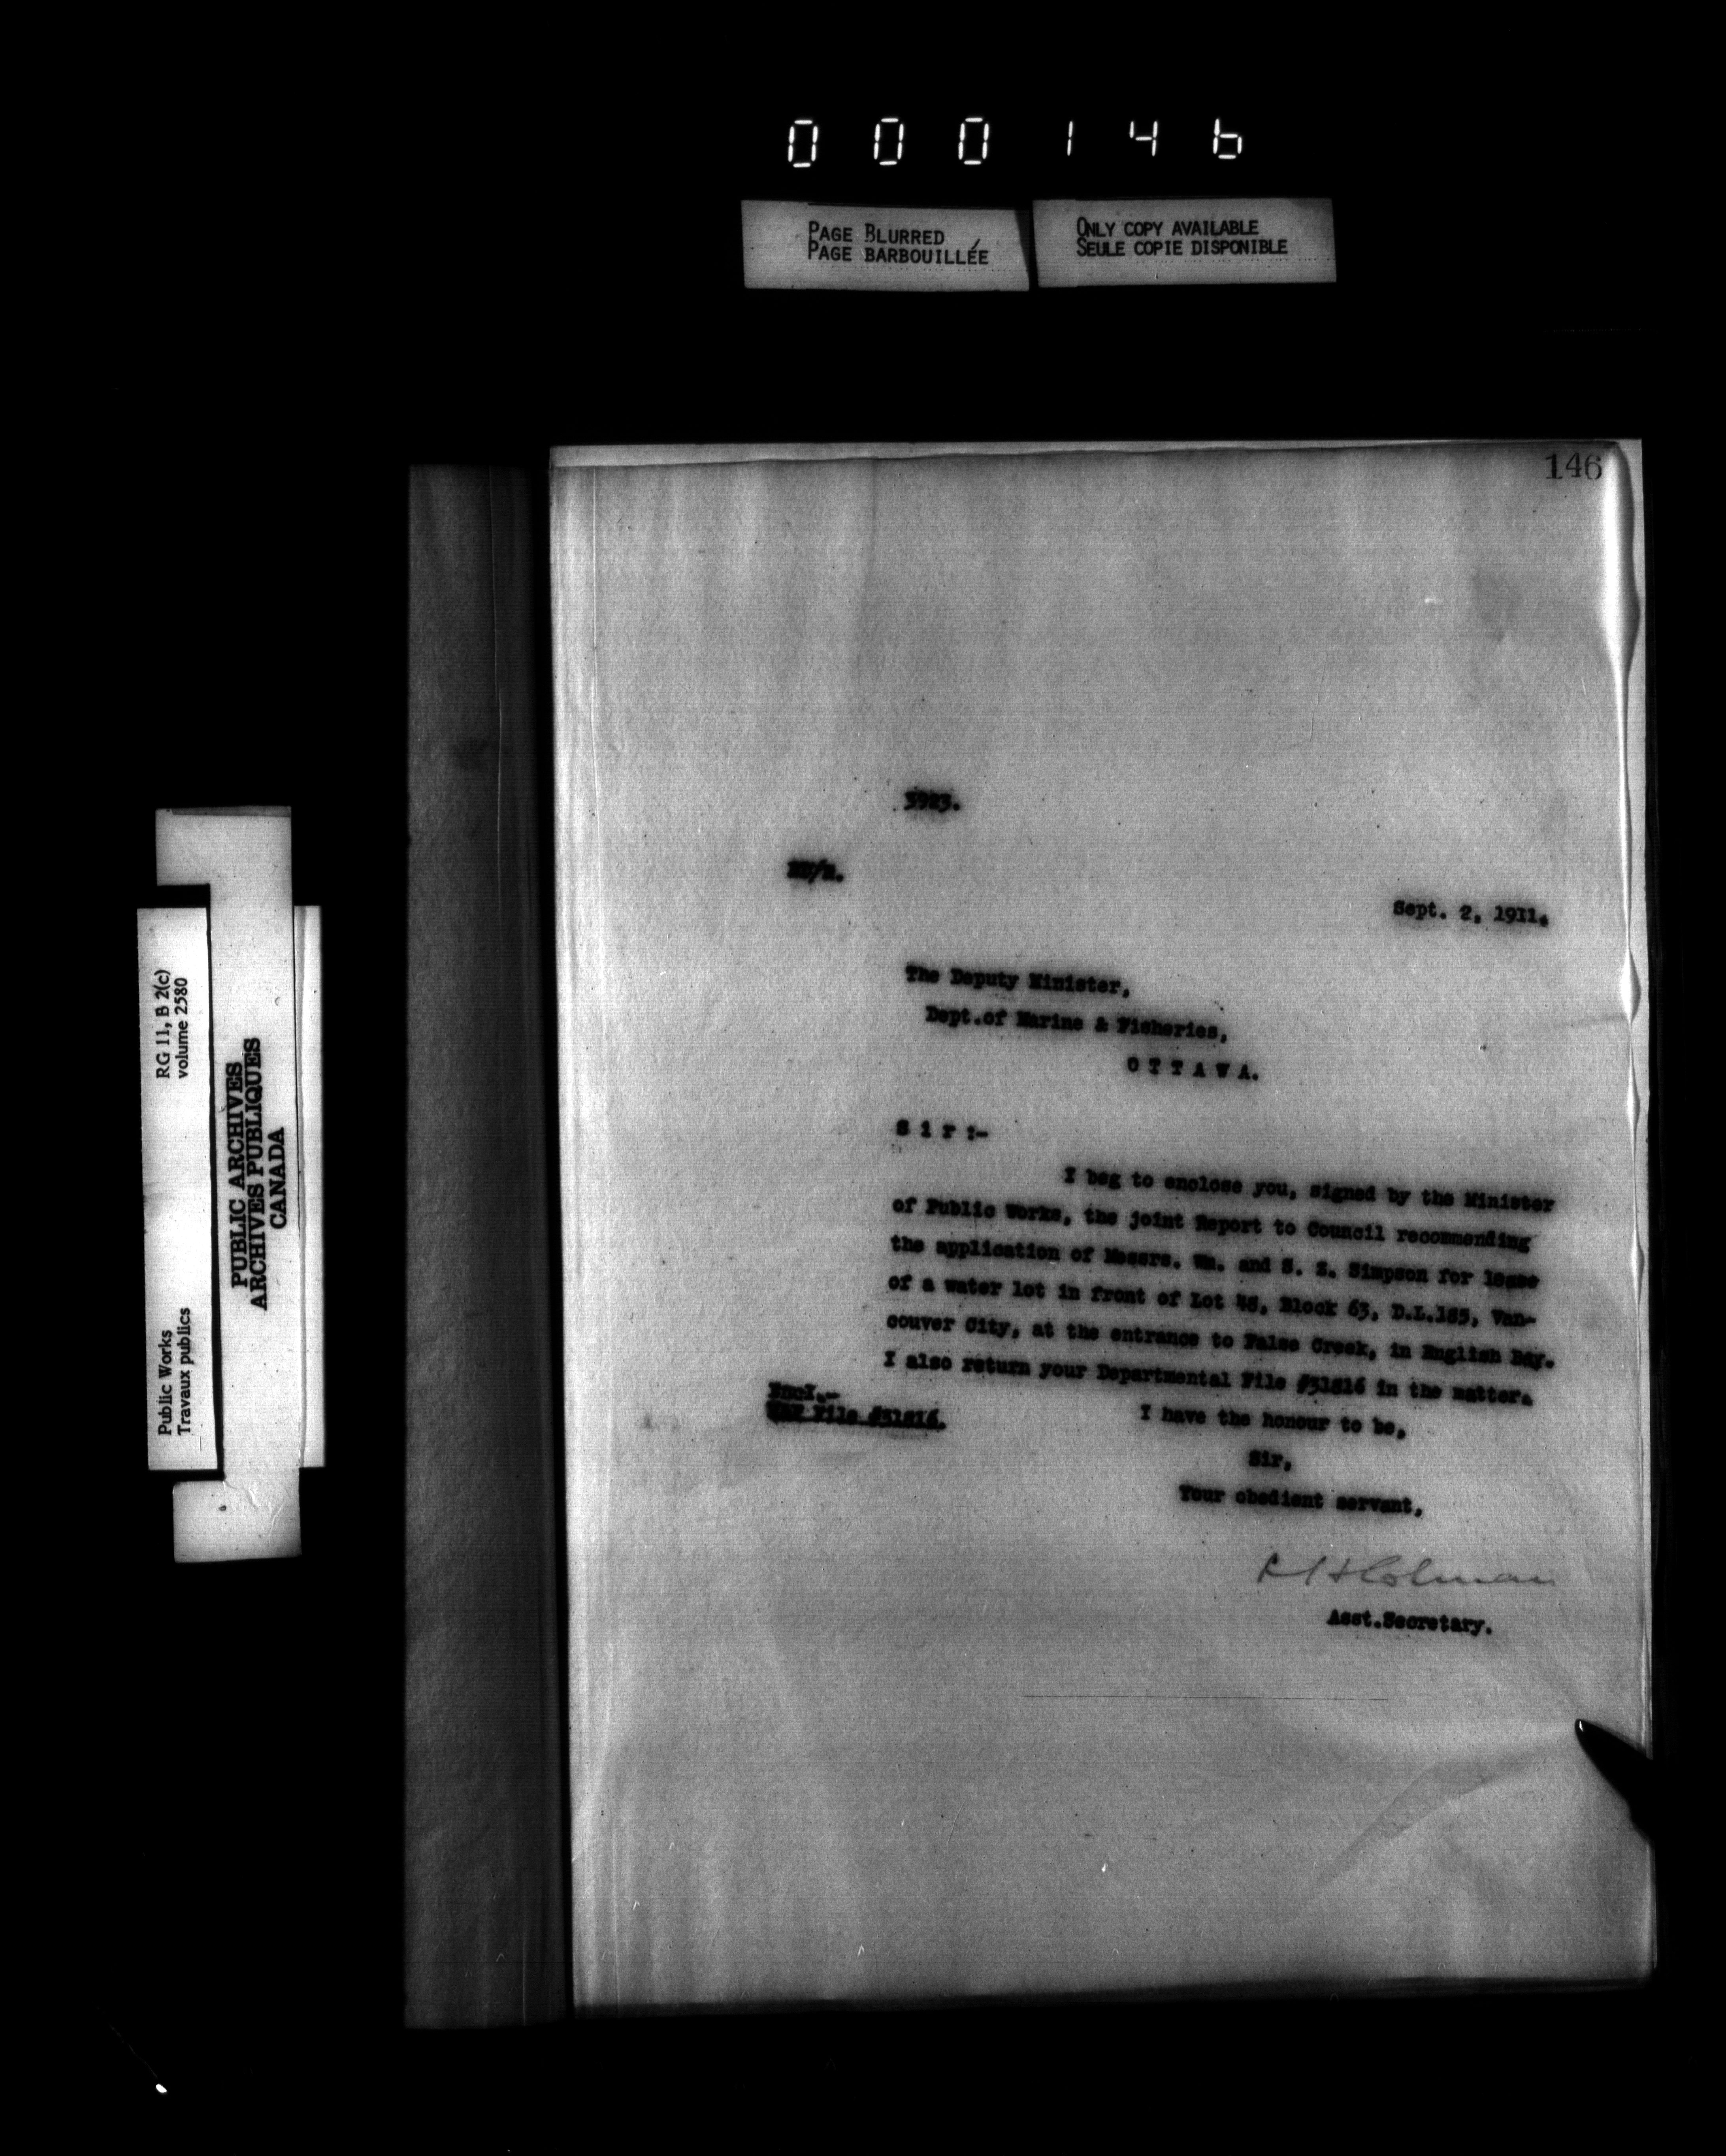 000146
PAGE BLURRED
PAGE BARBOUILLÉE
ONLY COPY AVAILABLE
SEULE COPIE DISPONIBLE
146
3923.
Sept. 2, 1911.
The Deputy Minister,
Dept.of Marine & Fisheries,
O T T A W A.
S i r :-
I beg to enclose you, signed by the Minister
of Public Works, the joint Report to Council recommending
the application of Messrs. Wm. and S. Z. Simpson for lease
of a water lot in front of Lot Block 63, D.L.185, Van-
couver City, at the entrance to False Creek, in English Bay.
I also return your Departmental File #31816 in the matter.
Encl.-
File #31816.
I have the honour to be,
Sir,
Your obedient servant,
Asst.Secretary.
Public Works
Travaux publics
RG 11, B 2(c)
volume 2580
PUBLIC ARCHIVES
ARCHIVES PUBLIQUES
CANADA